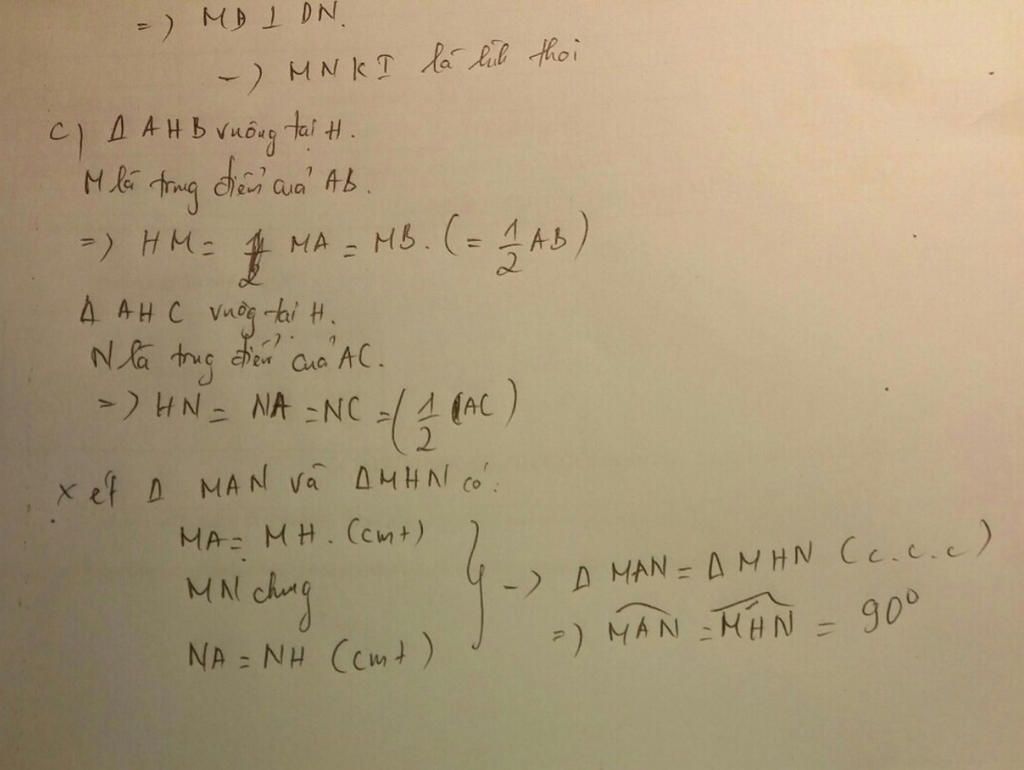 =) MD ⊥ DN.
-) MNKI là hình thoi
c) Δ AHB vuông tại H.
M là trung điểm của AB.
=) HM = MA = MB. (= 1/2 AB)
Δ AHC vuông tại H.
N là trung điểm của AC.
=) HN = NA = NC = (1/2 AC)
Xét Δ MAN và ΔMHN có:
MA = MH. (cmt)
MN chung
NA = NH (cmt)
-) Δ MAN = Δ MHN (c.c.c)
=) MAN = MHN = 90°